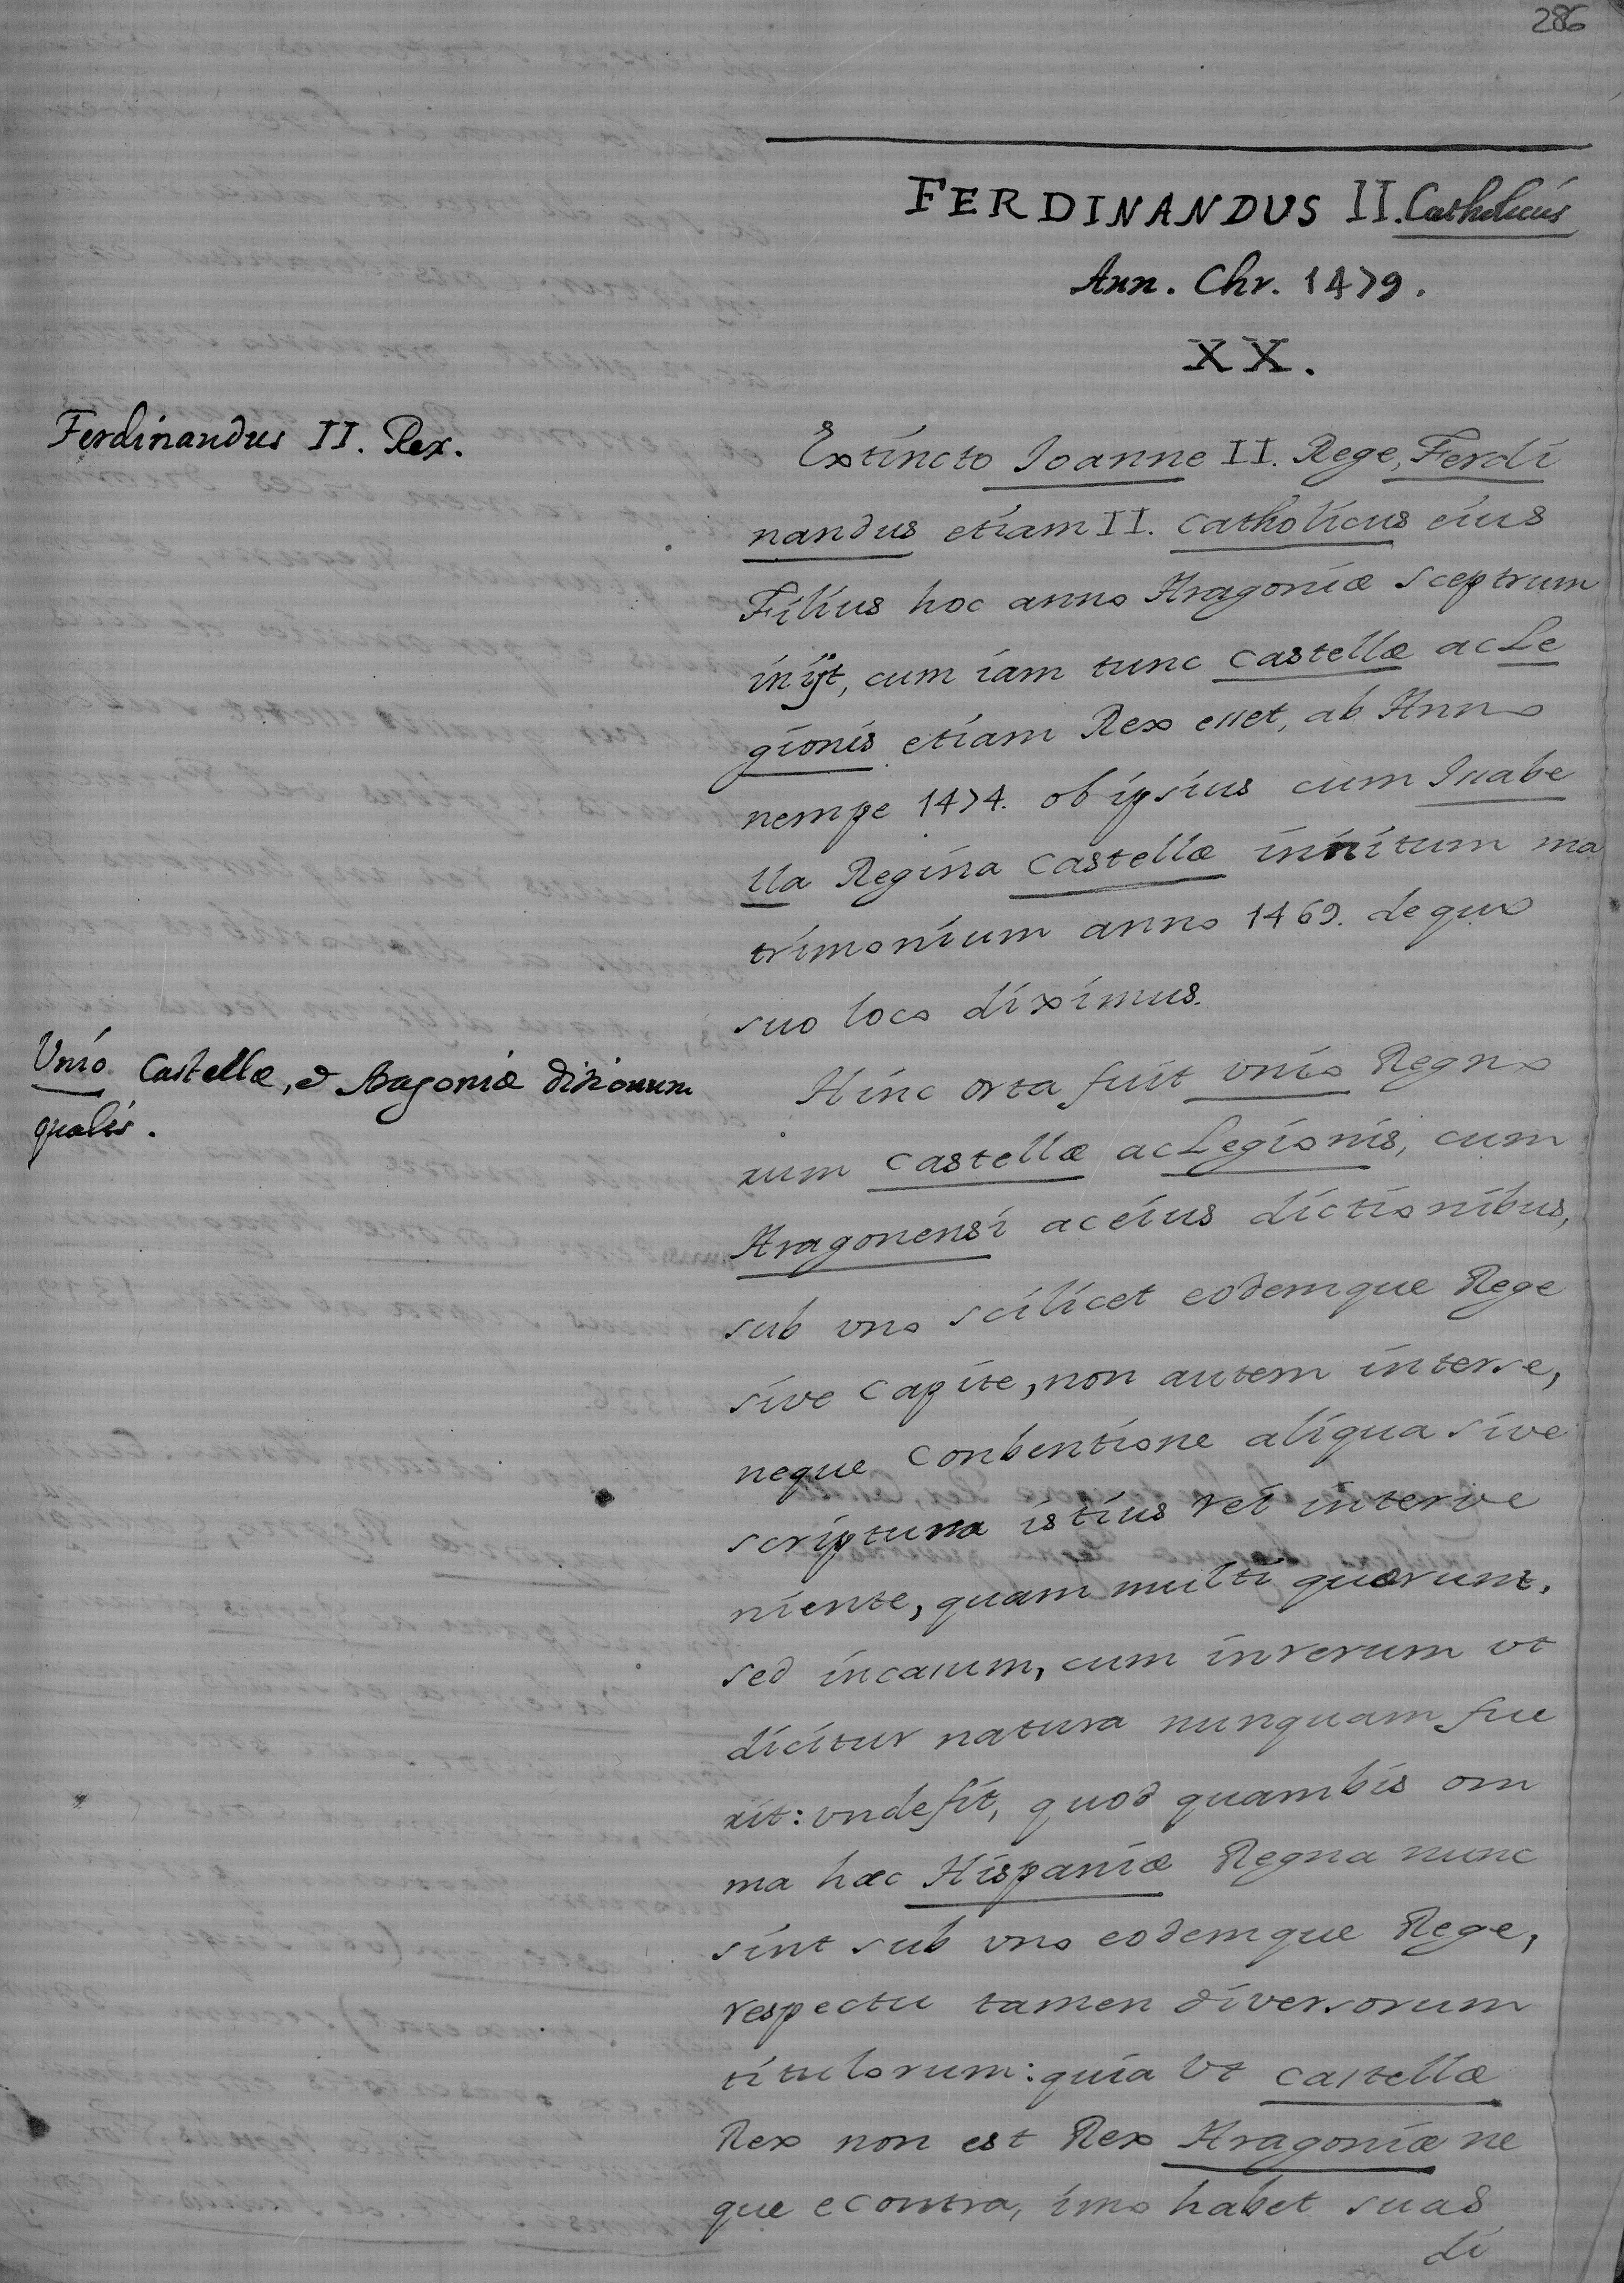 286
FERDINANDUS II. Catholicus
Ann. Chr. 1479.
XX.
Ferdinandus II. Rex.
Extincto Ioanne II. Rege, Ferdi
nandus etiam II. Catholicus eius
Filius hoc anno Aragoniæ sceptrum
inijt, cum iam tunc Castellæ ac Le
gionis etiam Rex esset, ab Anno
nempe 1474. ob ipsius cum Isabe
lla Regina Castellæ innitum ma
trimonium anno 1469. de quo
suo loco diximus.
Unio Castellæ, & Aragoniæ
qualis.
Hinc orta fuit vnio Regno
rum Castellæ ac Legionis, cum
Aragonensi ac eius dictionibus,
sub vno scilicet eodemque Rege
sive Capite, non autem inter se,
neque Conbentione aliqua sive
scriptura istius rei interve
niente, quam multi quærunt,
sed incasum, cum in rerum vt
dicitur natura nunquam fue
rit: vnde fit, quod quambis om
ma hæc Hispaniæ Regna nunc
sint sub vno eodemque Rege,
respectu tamen diversorum
titulorum: quia vt Castellæ
Rex non est Rex Aragoniæ ne
que econtra, imo habet suas
di